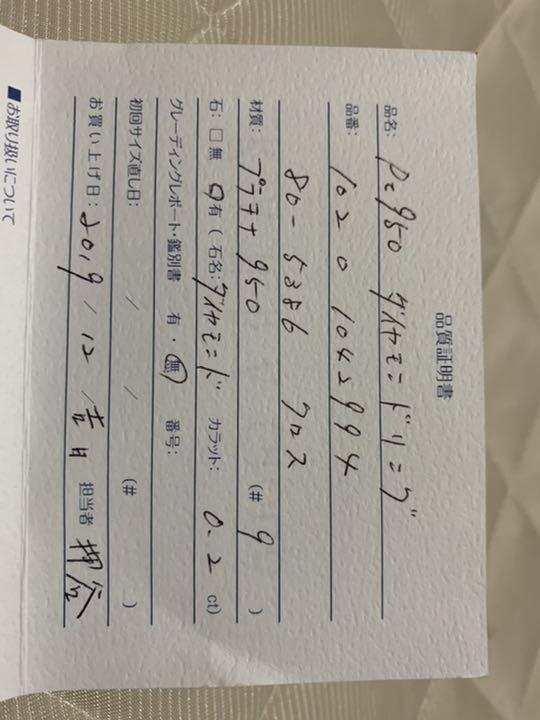 品質証明書
品名: Pt950 ダイヤモンドリング
品番: 1020 1042994
80-5386 クロス
材質: プラチナ950 (# 9 )
石: □無 有 ( 石名: ダイヤモンド カラット: 0.2 ct)
グレーディングレポート・鑑別書 有・無 番号:
初回サイズ直し日: / / (# )
お買い上げ日: 2019 / 12 / 吉日 担当者
■お取り扱いについて